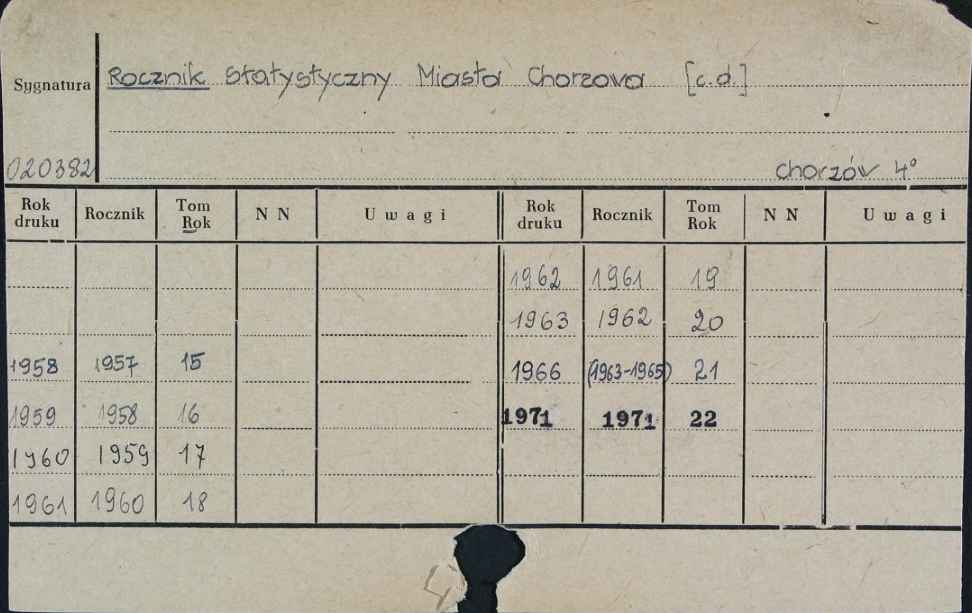 Sygnatura Rocznik Statystyczny Miasta Chorzowa [c.d.]
020382 Chorzów 4°
Rok druku Rocznik Tom Rok N N Uwagi Rok druku Rocznik Tom Rok N N Uwagi
1962 1961 19
1963 1962 20
1958 1957 15 1966 (1963-1965) 21
1959 1958 16 1971 1971 22
1960 1959 17
1961 1960 18
4